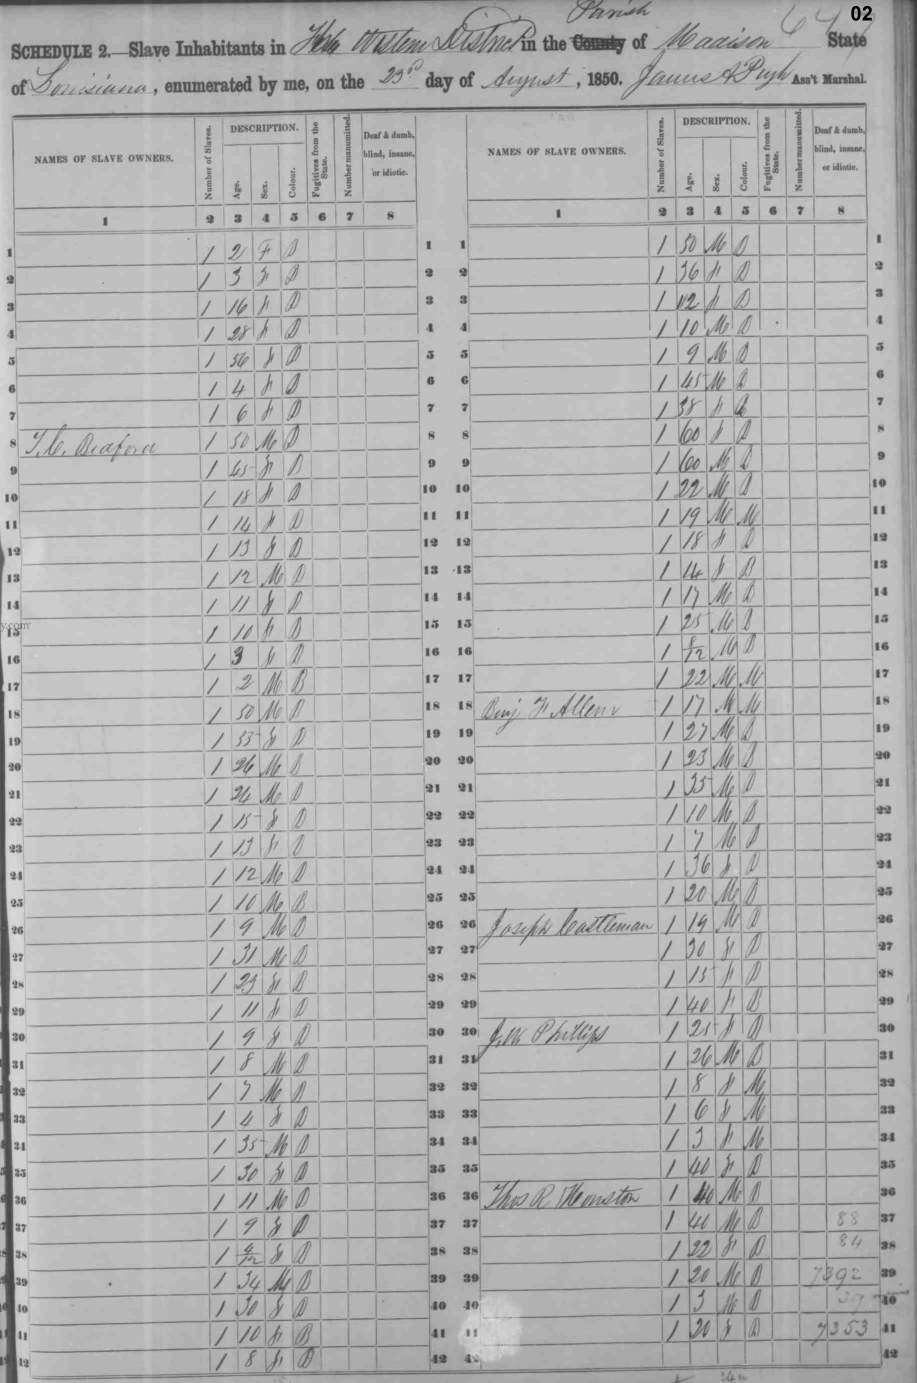 02
Parish 64
SCHEDULE 2.—Slave Inhabitants in Western District in the County of Madison State
of Louisiana, enumerated by me, on the 23rd day of August, 1850. James A Pugh Ass't Marshal.
NAMES OF SLAVE OWNERS. Number of Slaves. DESCRIPTION. Age. Sex. Colour. Fugitives from the State. Number manumitted. Deaf & dumb, blind, insane, or idiotic. NAMES OF SLAVE OWNERS. Number of Slaves. DESCRIPTION. Age. Sex. Colour. Fugitives from the State. Number manumitted. Deaf & dumb, blind, insane, or idiotic.
1 2 3 4 5 6 7 8 1 2 3 4 5 6 7 8
1 1 2 F B 1 1 1 50 M B 1
2 1 3 F B 2 2 1 36 F B 2
3 1 16 F B 3 3 1 12 F B 3
4 1 28 F B 4 4 1 10 M B 4
5 1 56 F B 5 5 1 9 M B 5
6 1 4 F B 6 6 1 45 M B 6
7 1 6 F B 7 7 1 38 F B 7
8 T. C. Beaford 1 50 M B 8 8 1 60 F B 8
9 1 65 F B 9 9 1 60 M B 9
10 1 18 F B 10 10 1 22 M B 10
11 1 14 F B 11 11 1 19 M M 11
12 1 13 F B 12 12 1 18 F B 12
13 1 12 M B 13 13 1 14 F B 13
14 1 11 F B 14 14 1 17 M B 14
15 1 10 F B 15 15 1 25 M B 15
16 1 3 F B 16 16 1 8/12 M B 16
17 1 2 M B 17 17 1 22 M M 17
18 1 50 M B 18 18 Benj F Allen 1 17 M M 18
19 1 55 F B 19 19 1 27 M B 19
20 1 26 M B 20 20 1 23 M B 20
21 1 24 M B 21 21 1 35 M B 21
22 1 15 F B 22 22 1 10 M B 22
23 1 13 F B 23 23 1 7 M B 23
24 1 12 M B 24 24 1 36 F B 24
25 1 10 M B 25 25 1 20 M B 25
26 1 9 M B 26 26 Joseph Castleman 1 19 M B 26
27 1 31 M B 27 27 1 30 F B 27
28 1 23 F B 28 28 1 15 F B 28
29 1 11 F B 29 29 1 40 F B 29
30 1 9 F B 30 30 J. W Phillips 1 25 F B 30
31 1 8 M B 31 31 1 26 M B 31
32 1 7 M B 32 32 1 8 F M 32
33 1 4 F B 33 33 1 6 F M 33
34 1 35 M B 34 34 1 3 F M 34
35 1 30 F B 35 35 1 40 F B 35
36 1 11 M B 36 36 Thos R. Houston 1 40 M B 36
37 1 9 F B 37 37 1 40 M B 88 37
38 1 4/12 F B 38 38 1 22 F B 84 38
39 1 34 M B 39 39 1 20 M B 7392 39
40 1 30 F B 40 40 1 3 M B 39 40
41 1 10 F B 41 41 1 20 F B 7353 41
42 1 8 F B 42 42 42